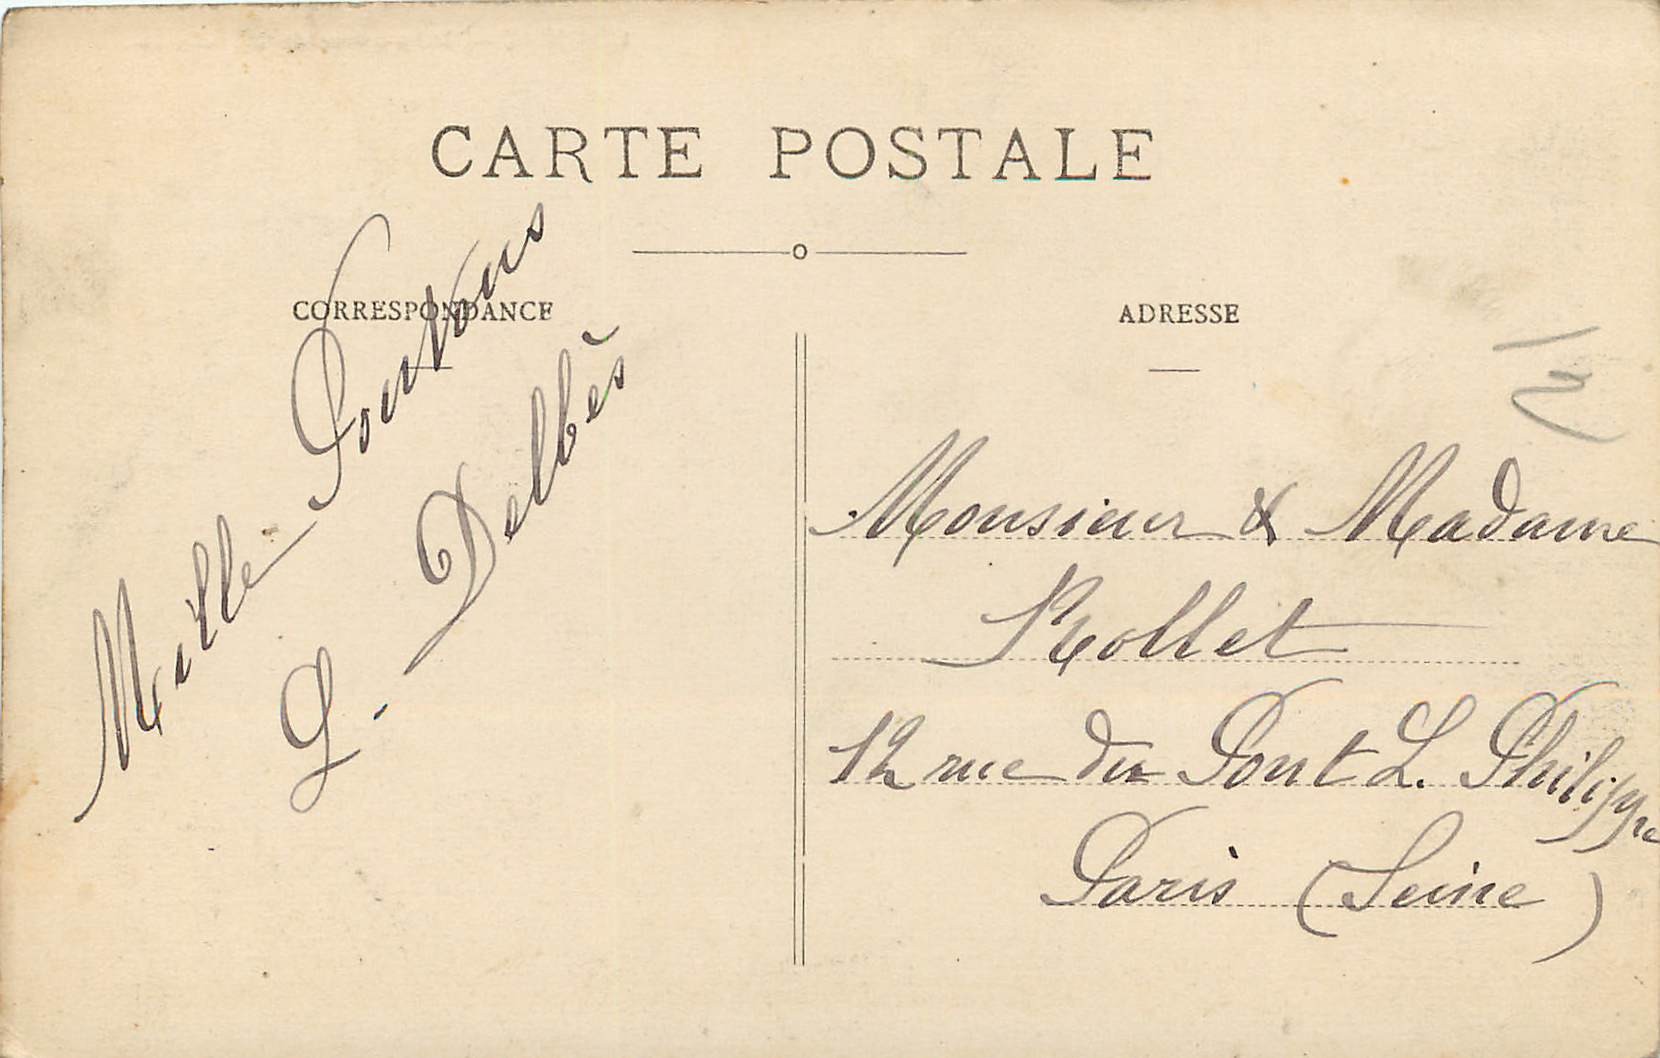 CARTE POSTALE
CORRESPONDANCE
Mille
L. Delbès
ADRESSE
Monsieur & Madame
Rollet
12 rue du Pont L. Philippe
Paris (Seine)